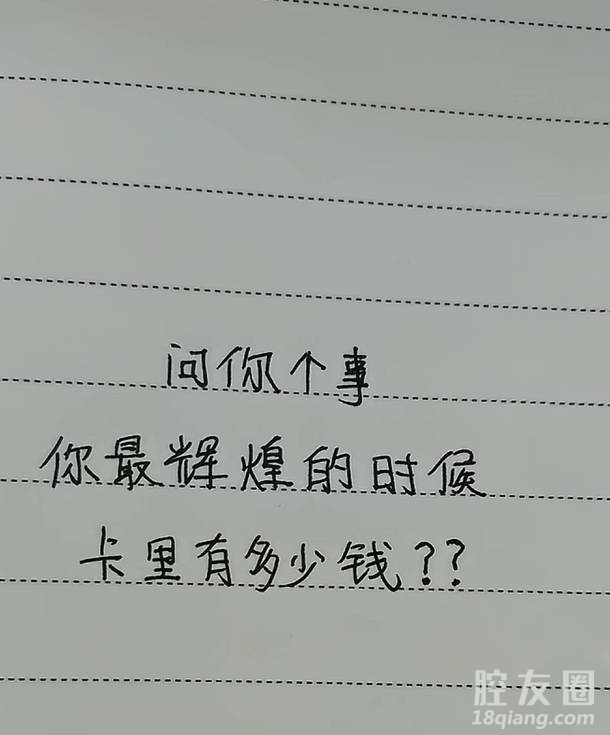 问你个事
你最辉煌的时候
卡里有多少钱??
腔友圈
18qiang.com